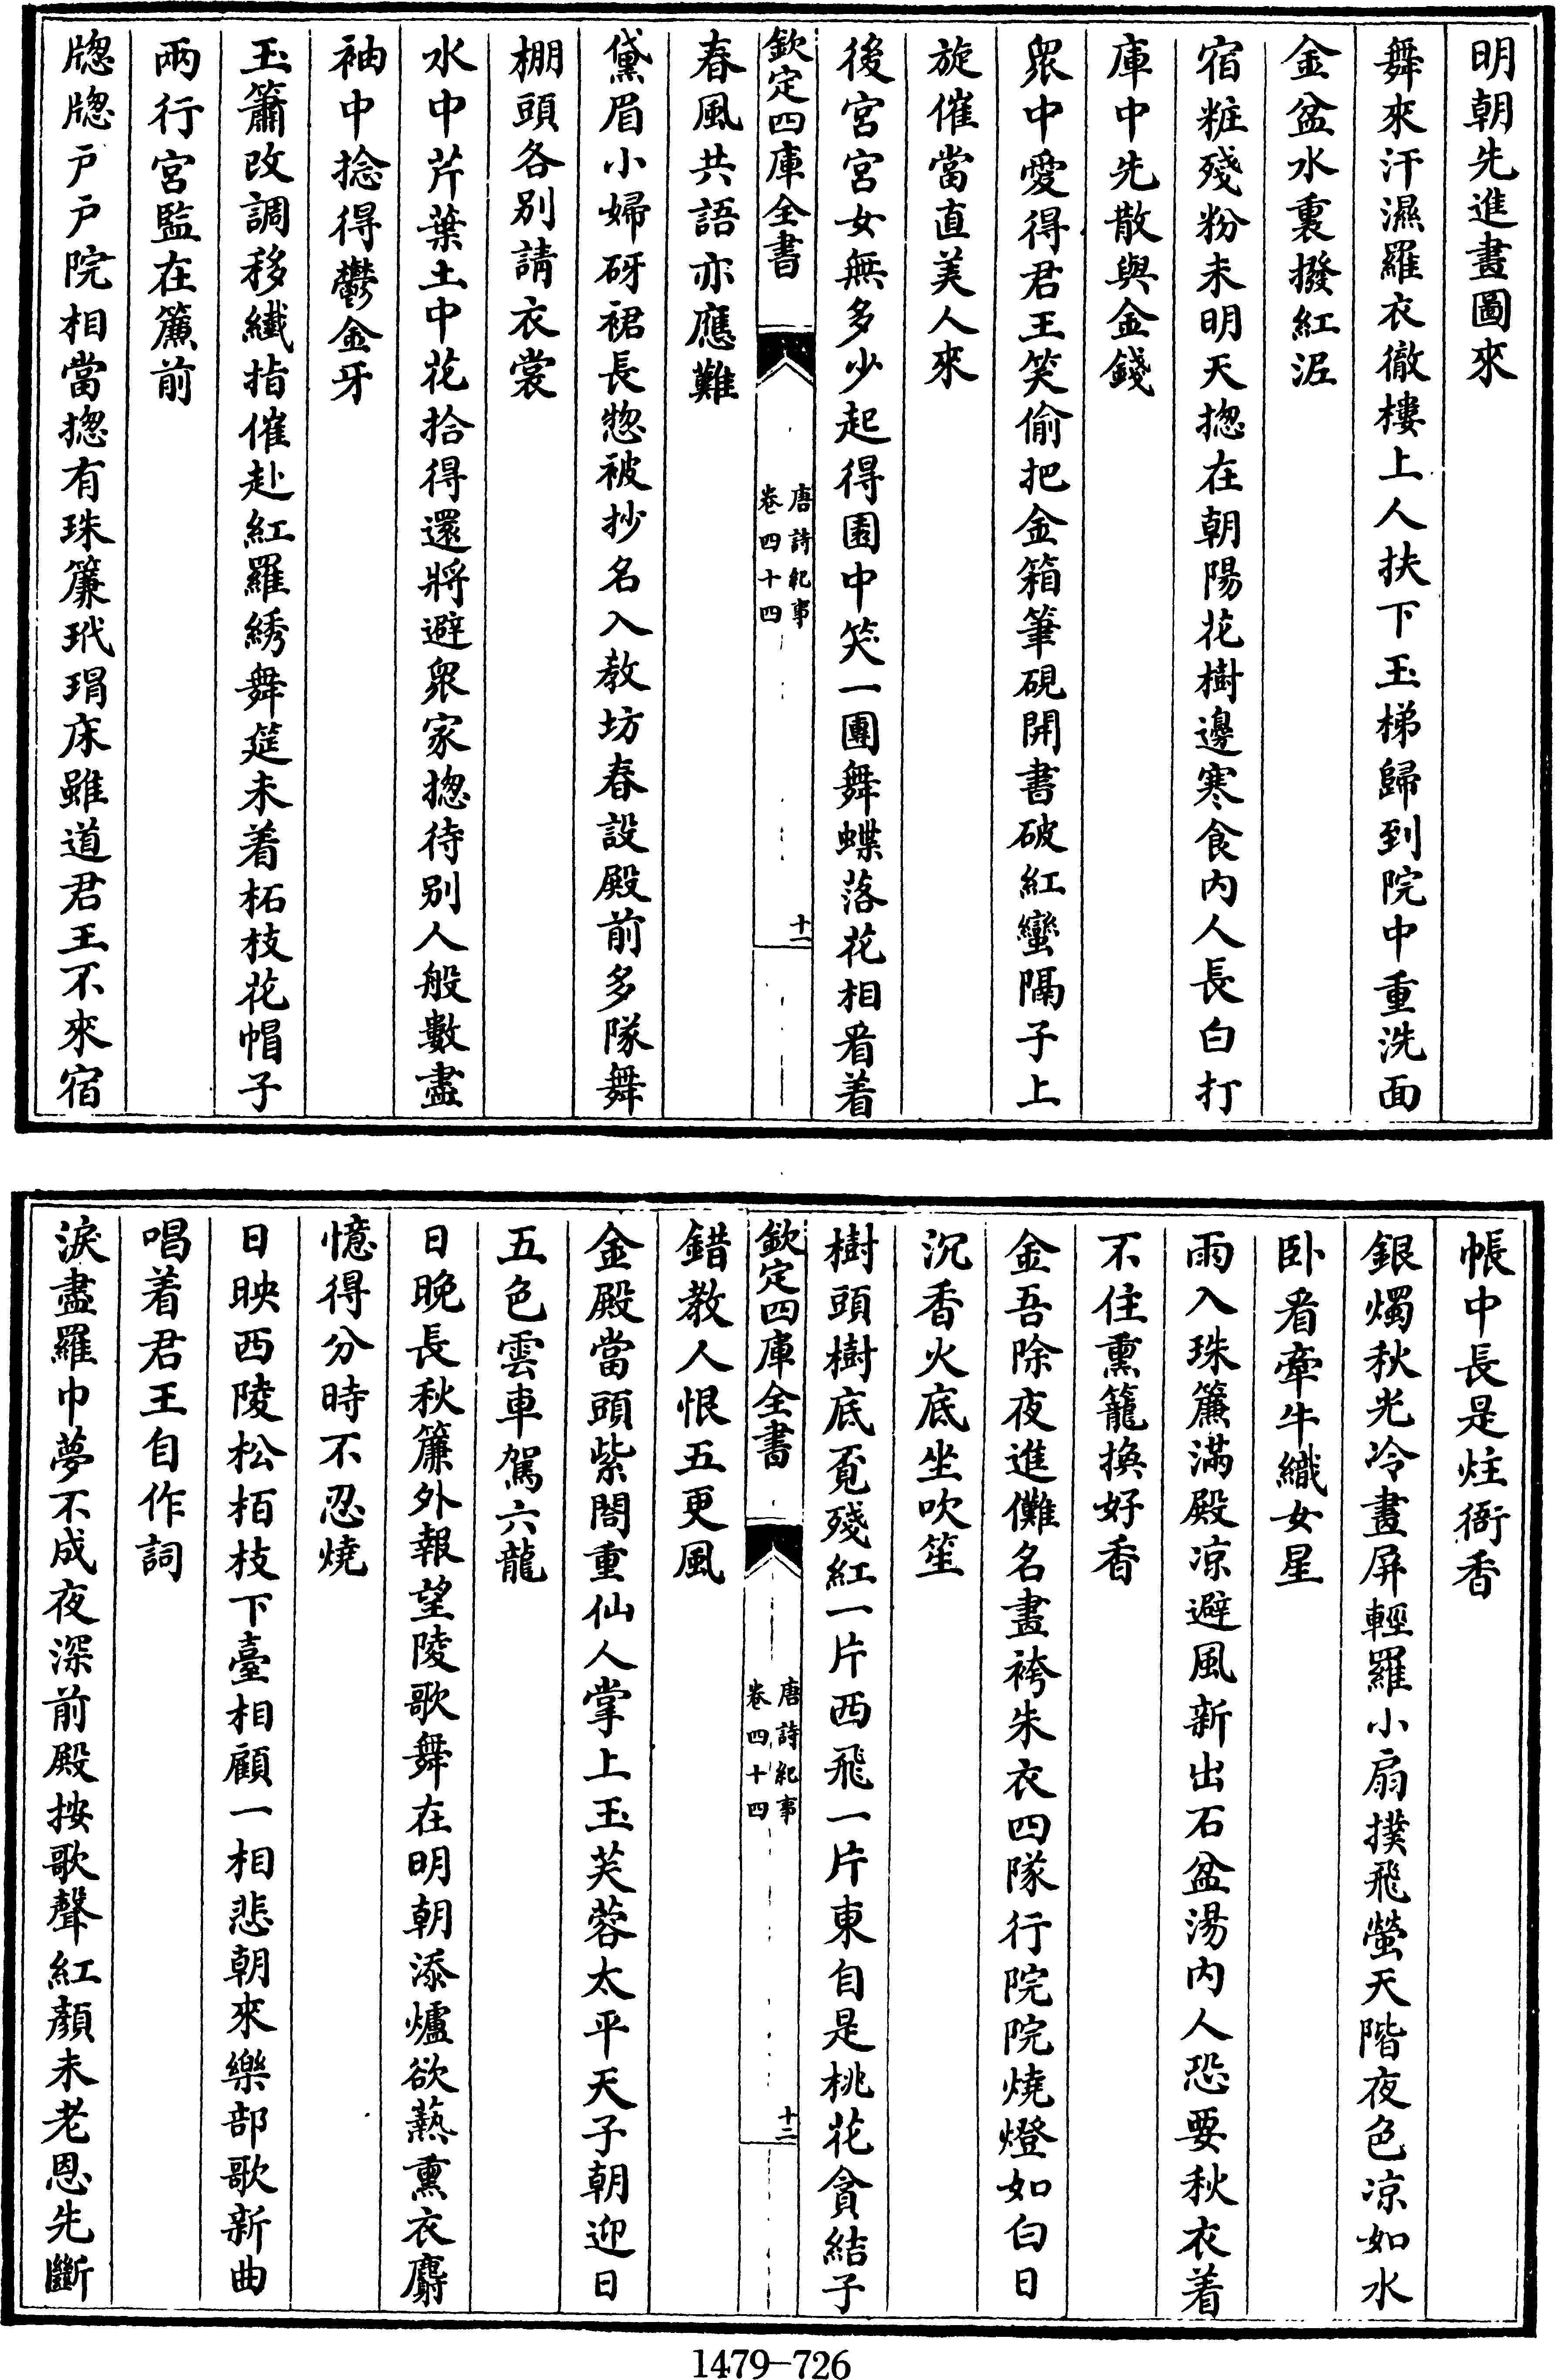 明朝先進畫圖來
舞來汗濕羅衣徹樓上人扶下玉梯歸到院中重洗面
金盆水裏撥紅泥
宿粧殘粉未明天揔在朝陽花樹邊寒食内人長白打
庫中先散與金錢
衆中愛得君王笑偷把金箱筆硯開書破紅蠻隔子上
旋催當直美人來
後宮宮女無多少起得園中笑一團舞蝶落花相看着
欽定四庫全書
唐詩紀事
卷四十四
十一
春風共語亦應難
黛眉小婦砑裙長惣被抄名入教坊春設殿前多隊舞
棚頭各别請衣裳
水中芹葉土中花拾得還將避衆家揔待别人般數盡
袖中捻得鬱金牙
玉簫改調移纎指催赴紅羅綉舞筵未着柘枝花帽子
兩行宮監在簾前
牕牕戸戸院相當揔有珠簾玳瑁床雖道君王不來宿
帳中長是炷衙香
銀燭秋光冷畫屏輕羅小扇撲飛螢天階夜色凉如水
卧看牽牛織女星
雨入珠簾滿殿凉避風新出石盆湯内人恐要秋衣着
不住熏籠換好香
金吾除夜進儺名畫袴朱衣四隊行院院燒燈如白日
沉香火底坐吹笙
樹頭樹底覓殘紅一片西飛一片東自是桃花貪結子
欽定四庫全書
唐詩紀事
卷四十四
十二
錯教人恨五更風
金殿當頭紫閣重仙人掌上玉芙蓉太平天子朝迎日
五色雲車駕六龍
日晚長秋簾外報望陵歌舞在明朝添爐欲爇熏衣麝
憶得分時不忍燒
日映西陵松栢枝下臺相顧一相悲朝來樂部歌新曲
唱着君王自作詞
淚盡羅巾夢不成夜深前殿按歌聲紅顔未老恩先斷
1479-726